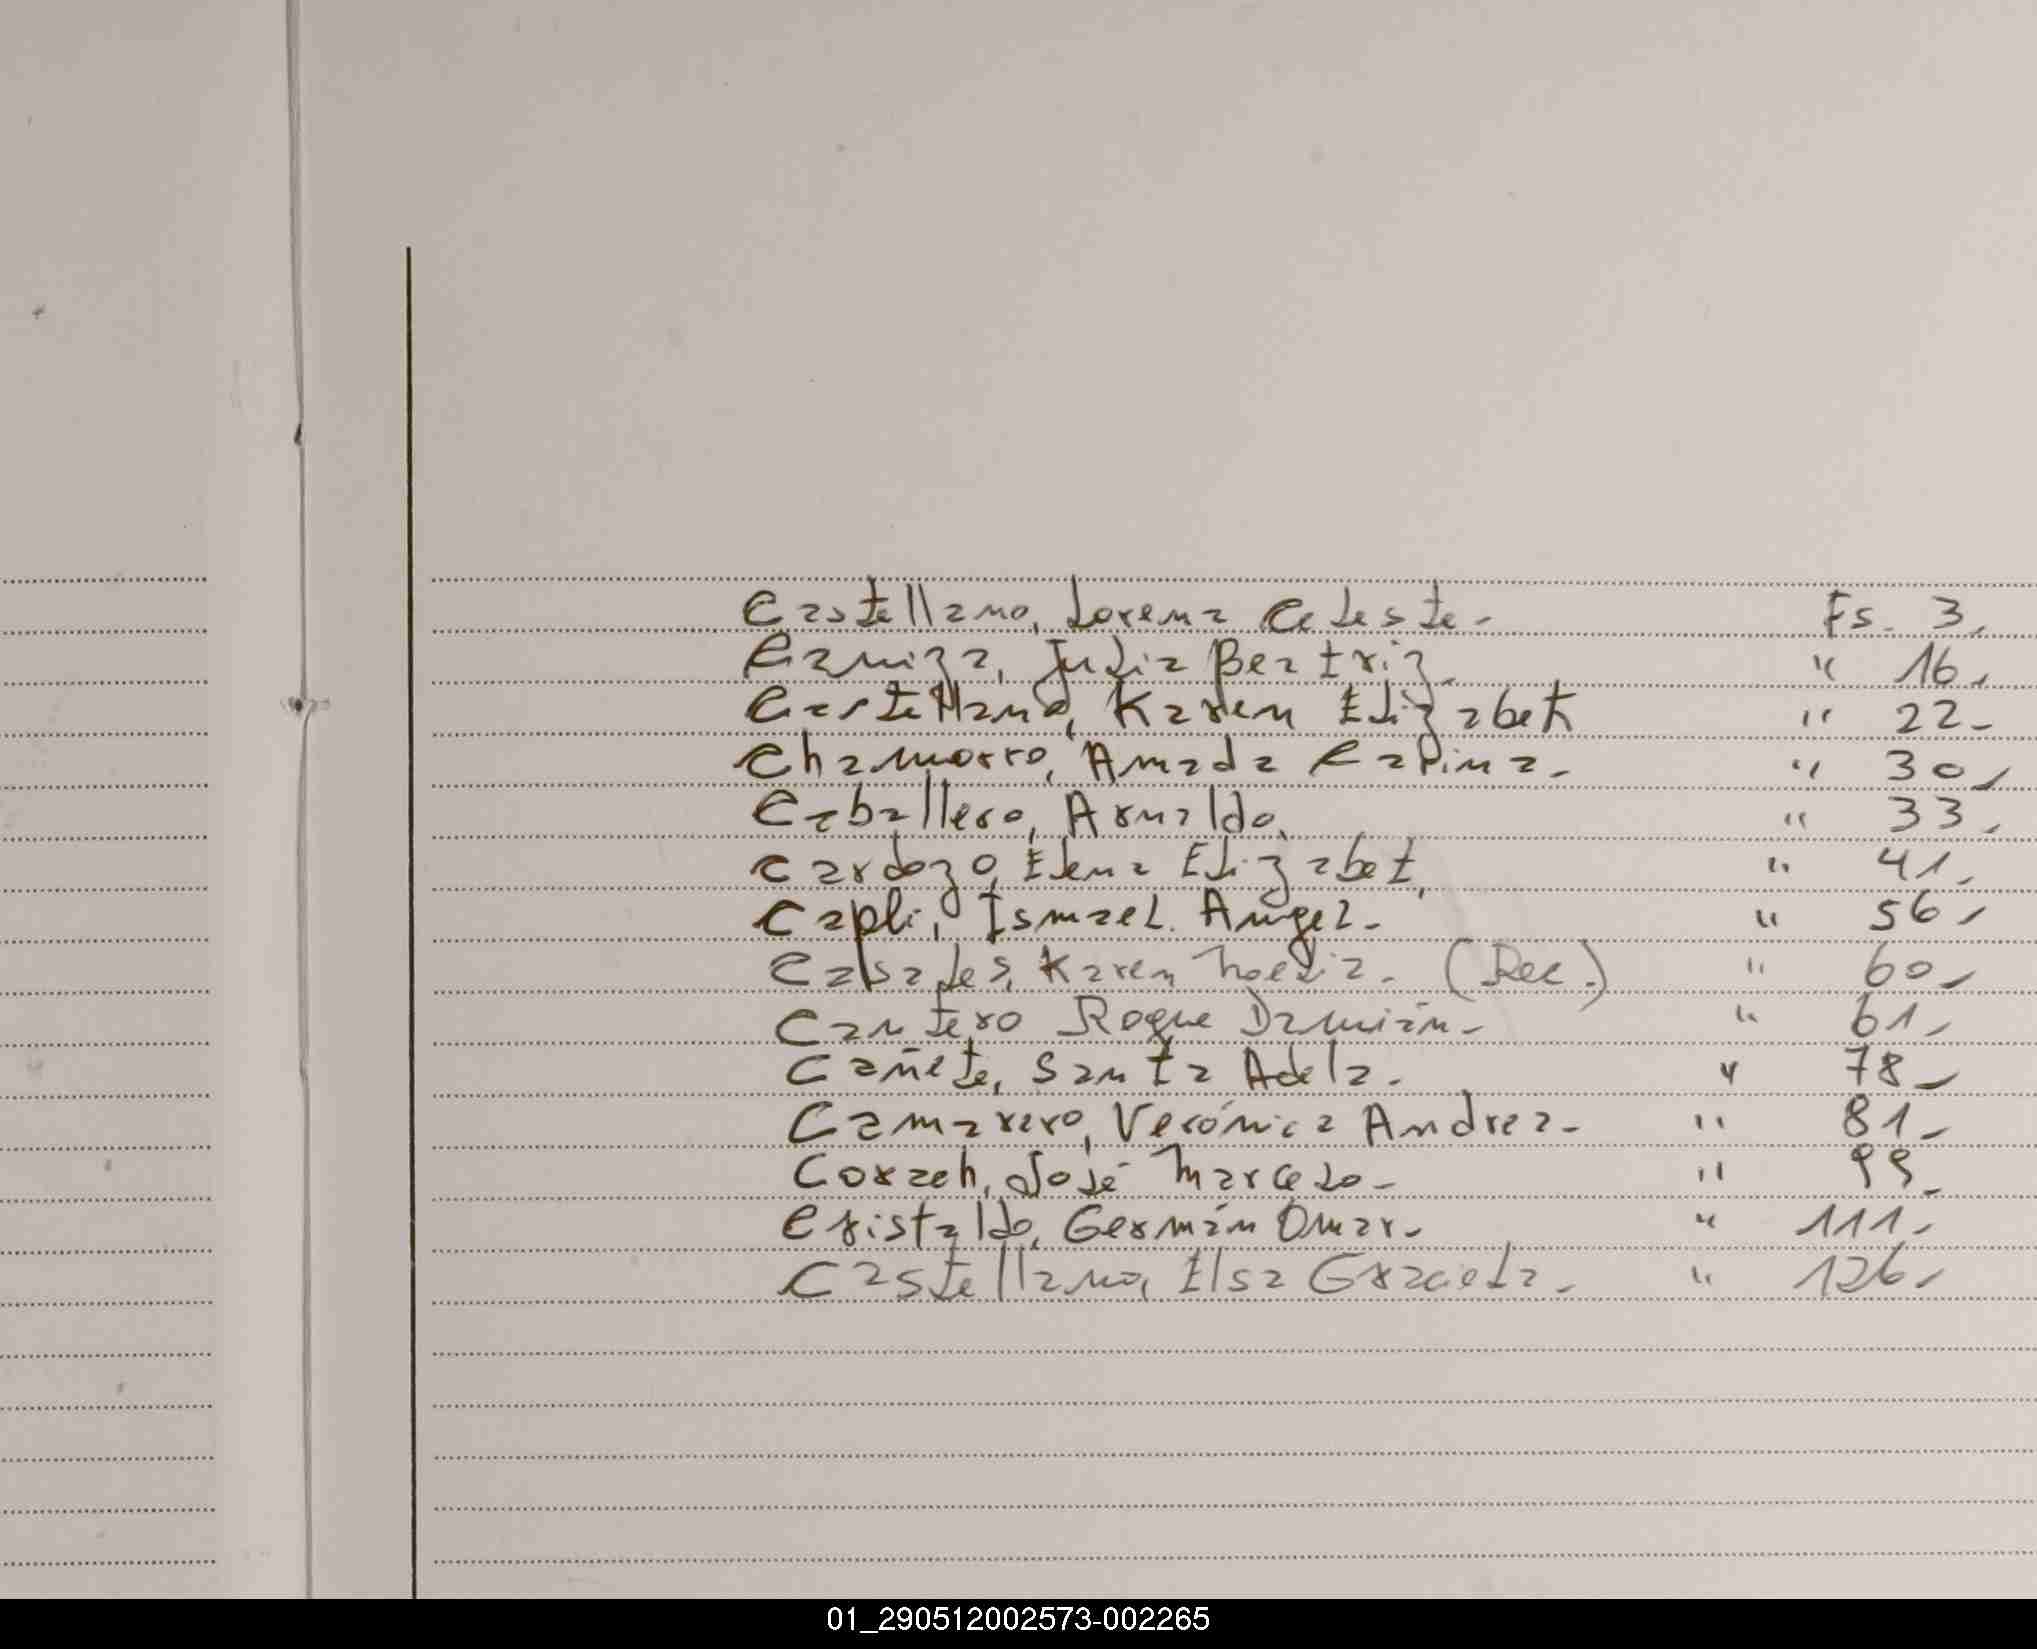 Castellano, Lorena Celeste. Fs. 3.
Caniza, Julia Beatriz. " 16.
Castellano, Karen Elizabeth " 22.
Chamorro, Amada Calina. " 30.
Caballero, Arnaldo. " 33.
Cardozo, Elena Elizabet. " 41.
Capli, Ismael Angel. " 56.
Casales, Karen Noelia. (Rec.) " 60.
Cantero Roque Damián. " 61.
Cañete, Santa Adela. " 78.
Camarero, Verónica Andrea. " 81.
Corzeh, José Marcelo. " 99.
Cristaldo, Germán Omar. " 111.
Castellano, Elsa Graciela. " 126.
01_290512002573-002265